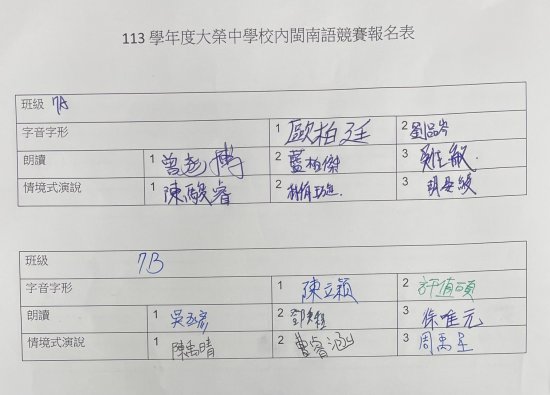 113 學年度大榮中學校內閩南語競賽報名表
班級 7A
字音字形 1 歐柏廷 2 劉品岑
朗讀 1 曾彪博 2 藍柏傑 3
情境式演說 1 陳酸睿 2 3
班級 7B
字音字形 1 陳立穎 2
朗讀 1 吳丞彥 2 3 徐唯元
情境式演說 1 陳禹晴 2 曹睿涵 3 周禹呈